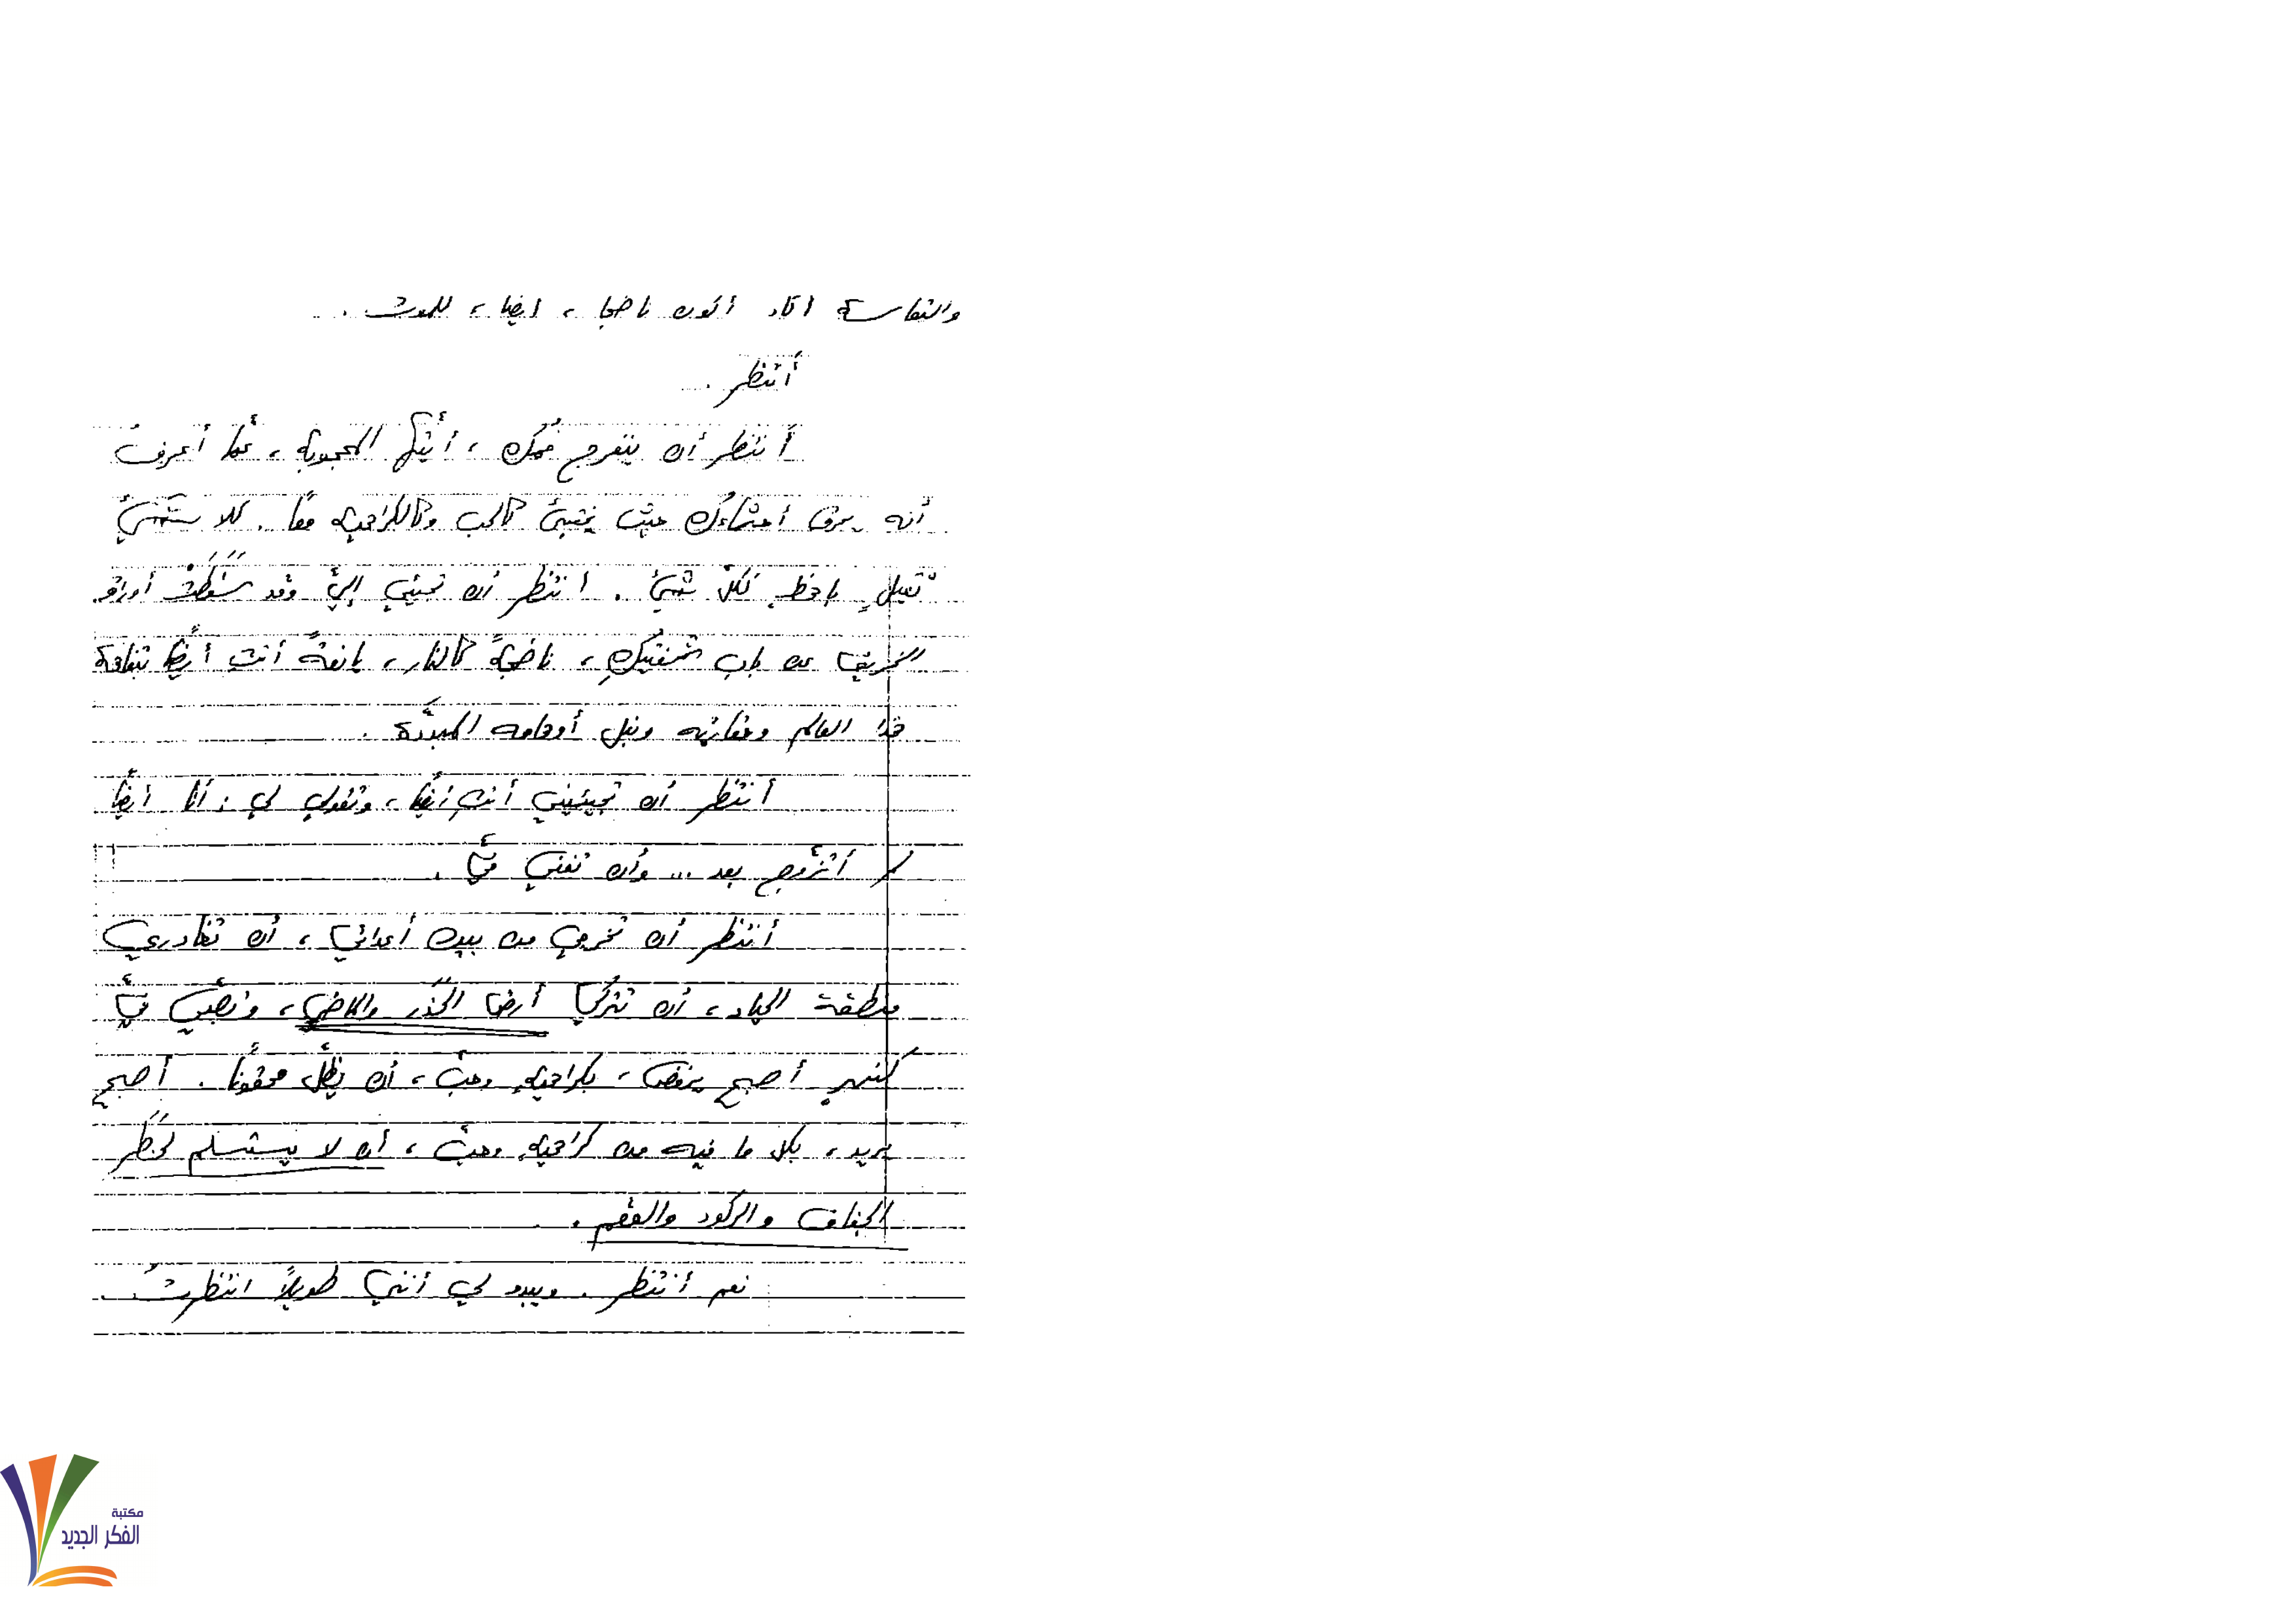 والتعاسة أكاد أكون ناضجا، ايضا، للموت.
أنتظر.
أنتظر أن ينفرج فمك، أيتها المحبوبة، عما أعرفُ
أنه يحرق أحشاءك حيث يختبئ كالحب وكالكراهية معًا. كلا شيءٍ
ثقيلٍ باهظٍ ككلّ شيء. انتظر أن تجيئي إليّ وقد سَقَطَتْ أوراق
الخريف عن باب شفتيكِ، ناضجةً كالنار، يانعةً أنتِ أيضًا بتفاهة
هذا العالم وعفانته ونبل أوهامه المبدِّدة.
أنتظر أن تجيئيني أنتِ أيضًا، وتقولي لي: أنا أيضًا
لم أتزوّج بعد... وأن تفني فيَّ.
أنتظر أن تخرجي من بين أعدائي، أن تغادري
منطقة الحياد، أن تتركي أرض الحَذَر والماضي، وتصُبّي فيَّ
كنهرٍ أصبح يرفض، بكراهيةٍ وحبّ، أن يظلّ محقونًا. أصبح
يريد، بكل ما فيه من كراهيةٍ وحبّ، أن لا يستسلم لخَطَر
الجفاف والركود والعقم.
نعم أنتظر. ويبدو لي أنني طويلاً انتظرتُ.
مكتبة
الفكر الجديد